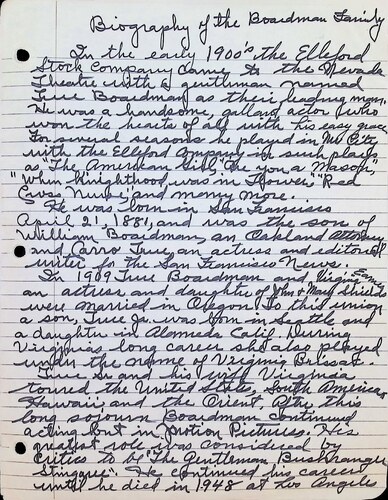 Biography of the Boardman Family
In the early 1900's the Elleford
Stock Company came to the Nevada
Theatre with a gentleman named
True Boardman as their leading man.
He was a handsome, galland actor who
won the hearts of all with his easy grace
For several seasons he played in N. City
with the Elleford Company in such plays
"The American Girl," "Are you a Mason,"
"When Knighthood was in Flower," "Red
Cross Nurse," and many more..
He was born in San Francisco
April 21, 1881, and was the son of
William Boardman, an Oakland Attorney
and Caro True, an actress and editorial
writer for the San Francisco News.
In 1909 True Boardman and Virginia Eames
an actress and daughter of John & Mary Shields
were married in Oregon. To this union
a son, True Jr. was born in Seattle and
a daughter in Alameda Calif. During
Virginias long career she also played
under the name of Virginia Brissac.
True and his wife Virginia
toured the United States, South America,
Hawaii, and the Orient. After this
long sojourn Boardman continued
acting but in Motion Pictures. His
greatest role was considered by
critics to be "The Gentleman Bushranger
Stingaree". He continued his career
until he died in 1948 at Los Angeles